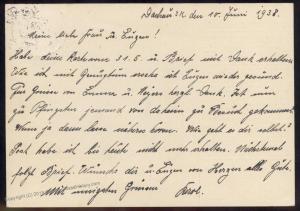 Dachau 3K, den 10. Juni 1938.
Meine liebe Frau u. Eugen!
Habe deine Karte vom 31.5. u. Brief mit Dank erhalten.
Wie ich mit ersehe ist Eugen wieder gesund.
Für Grüsse von u. herzl. Dank. Ist nun
zu Pfingsten jemand von daheim zu gekommen.
Wenn ja dann nähere hören. Wie geht es dir selbst?
Post habe ich bis heute nicht mehr erhalten. Nächstesmal
folgt Brief. Wünsche dir u. Eugen von Herzen alles Gute.
Mit innigsten Grüssen